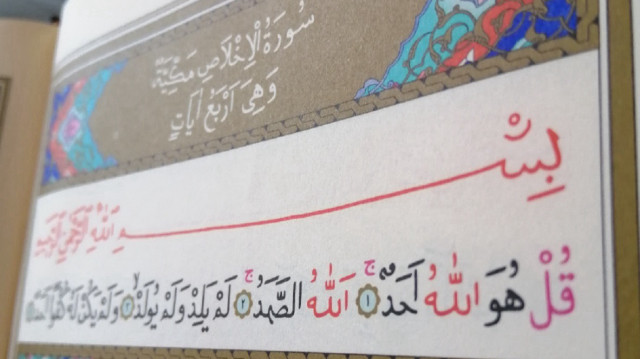 سُورَةُ الْإِخْلَاصِ مَكِّيَّةٌ
وَهِيَ اَرْبَعُ اٰيَاتٍ
بِسْمِ اللّٰهِ الرَّحْمٰنِ الرَّحِيمِ
قُلْ هُوَ اللّٰهُ اَحَدٌۚ ﴿١﴾ اَللّٰهُ الصَّمَدُۚ ﴿٢﴾ لَمْ يَلِدْ وَلَمْ يُولَدْۙ ﴿٣﴾ وَلَمْ يَكُنْ لَهُ كُفُوًا اَحَدٌ